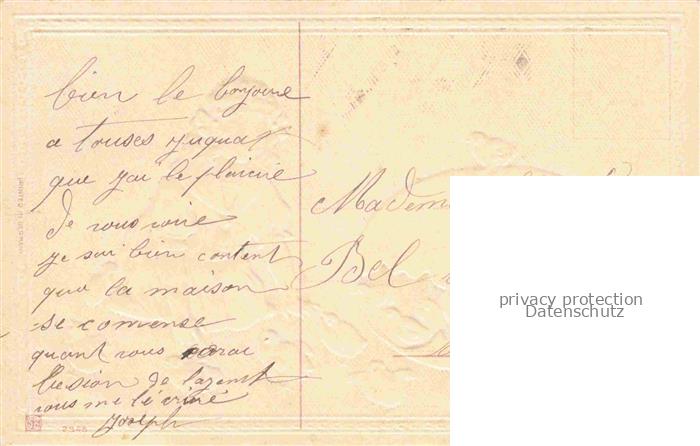 bien le bonjour
a touses juqua
que jai le plaicire
de vous voire
je sui bien content
que la maison
se comense
quant vous orai
besion de lazent
vous me lécriré
Joseph
Mademoi
Bel
PRINTED IN GERMANY
2948
privacy protection
Datenschutz